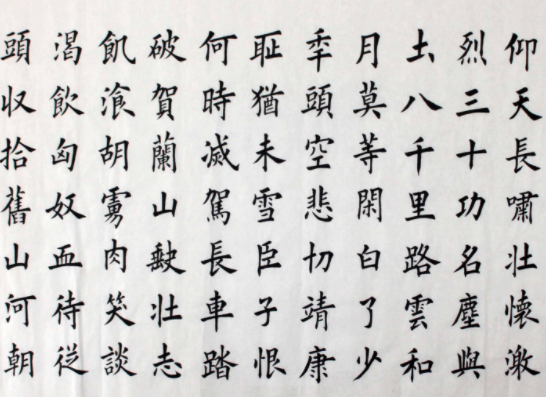 仰天長嘯壯懷激
烈三十功名塵與
土八千里路雲和
月莫等閑白了少
秊頭空悲切靖康
耻猶未雪臣子恨
何時滅駕長車踏
破賀蘭山缺壯志
飢湌胡虜肉笑談
渴飲匈奴血待從
頭收拾舊山河朝